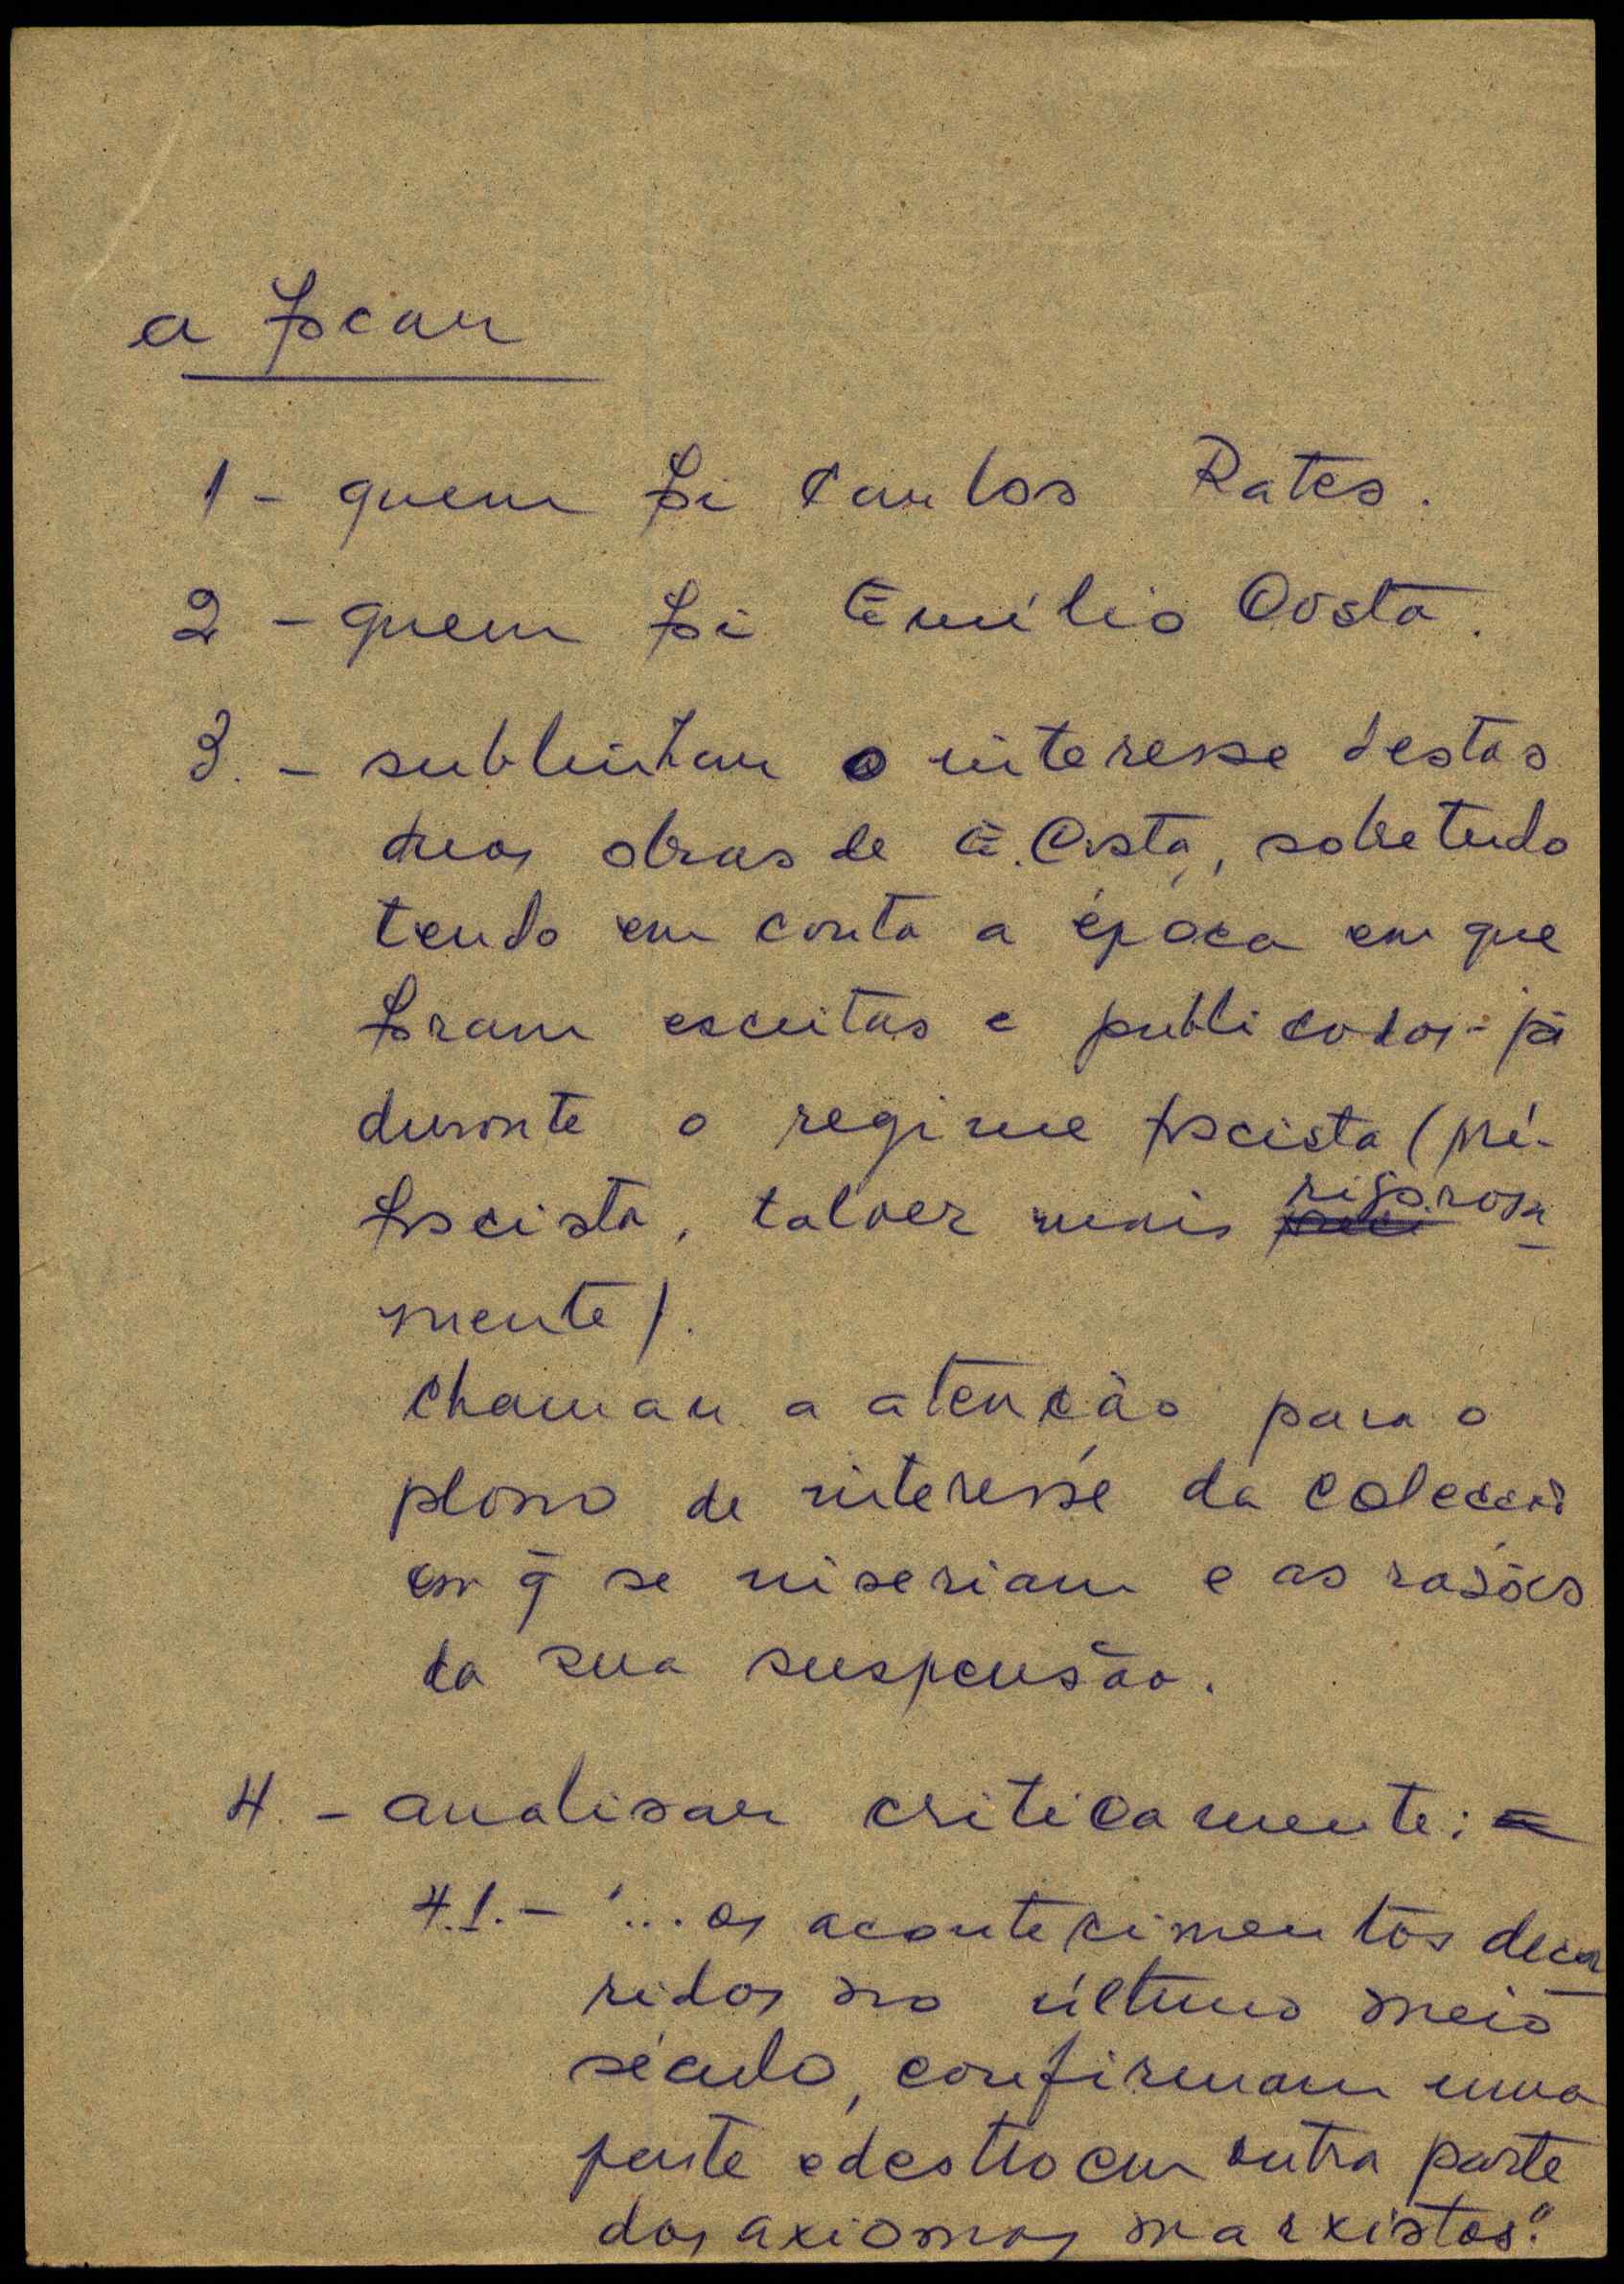 a focar
1 - quem foi Carlos Rates.
2 - quem foi Emílio Costa.
3. - sublinhar o interesse destas
duas obras de E. Costa, sobretudo
tendo em conta a época em que
foram escritas e publicadas - já
durante o regime fascista (pré-
fascista, talvez mais rigorosa-
mente).
Chamar a atenção para o
plano de interesse da colecção
em q̃ se inseriam e as razões
da sua suspensão.
4. - analisar criticamente:
4.1. - "... os acontecimentos decor
ridos no último meio
século, confirmam uma
parte e destroem outra parte
dos axiomas marxistas."